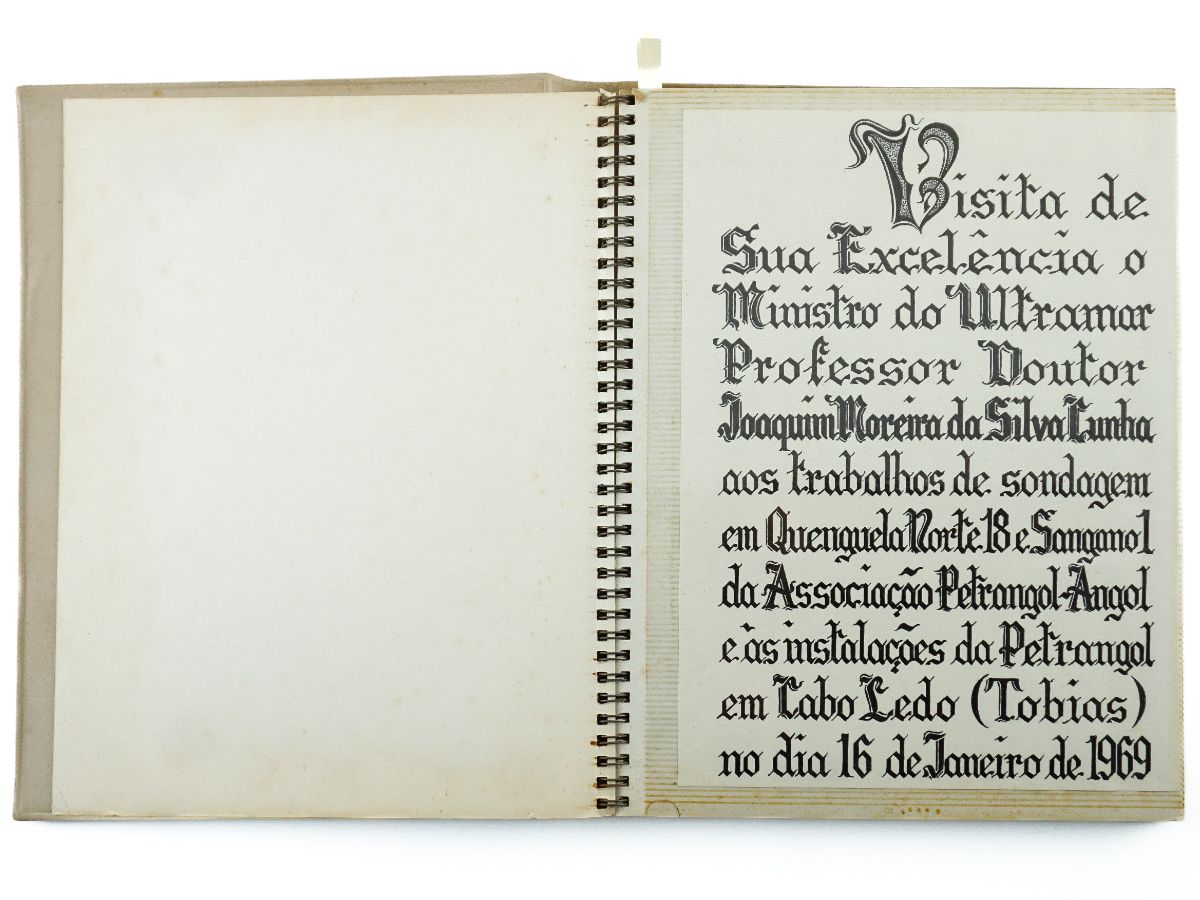 Visita de
Sua Excelência o
Ministro do Ultramar
Professor Doutor
Joaquim Moreira da Silva Cunha
aos trabalhos de sondagem
em Quenguela Norte 18 e Sangano 1
da Associação Petrangol-Angol
e às instalações da Petrangol
em Cabo Ledo (Tobias)
no dia 16 de Janeiro de 1969